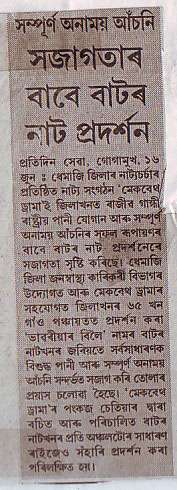 সম্পূৰ্ণ অনাময় আঁচনি
সজাগতাৰ
বাবে বাটৰ
নাট প্ৰদৰ্শন
প্ৰতিদিন সেৱা, গোগামুখ, ১৬
জুন : ধেমাজি জিলাৰ নাট্যচৰ্চাৰ
প্ৰতিষ্ঠিত নাট্য সংগঠন 'মেকবেথ
ড্ৰামা'ই জিলাখনত ৰাজীৱ গান্ধী
ৰাষ্ট্ৰীয় পানী যোগান আৰু সম্পূৰ্ণ
অনাময় আঁচনিৰ সফল ৰূপায়ণৰ
বাবে বাটৰ নাট প্ৰদৰ্শনেৰে
সজাগতা সৃষ্টি কৰিছে। ধেমাজি
জিলা জনস্বাস্থ্য কাৰিকৰী বিভাগৰ
উদ্যোগত আৰু মেকবেথ ড্ৰামাৰ
সহযোগত জিলাখনৰ ৬৫ খন
গাঁও পঞ্চায়তত প্ৰদৰ্শন কৰা
'ভাৱৰীয়াৰ বিলৈ' নামৰ বাটৰ
নাটখনৰ জৰিয়তে সৰ্বসাধাৰণক
বিশুদ্ধ পানী আৰু সম্পূৰ্ণ অনাময়
আঁচনি সন্দৰ্ভত সজাগ কৰি তোলাৰ
প্ৰয়াস চলোৱা হৈছে। 'মেকবেথ
ড্ৰামা'ৰ পংকজ চেতিয়াৰ দ্বাৰা
ৰচিত আৰু পৰিচালিত বাটৰ
নাটখনৰ প্ৰতি অঞ্চলটোৰ সাধাৰণ
ৰাইজেও সঁহাৰি প্ৰদৰ্শন কৰা
পৰিলক্ষিত হয়।